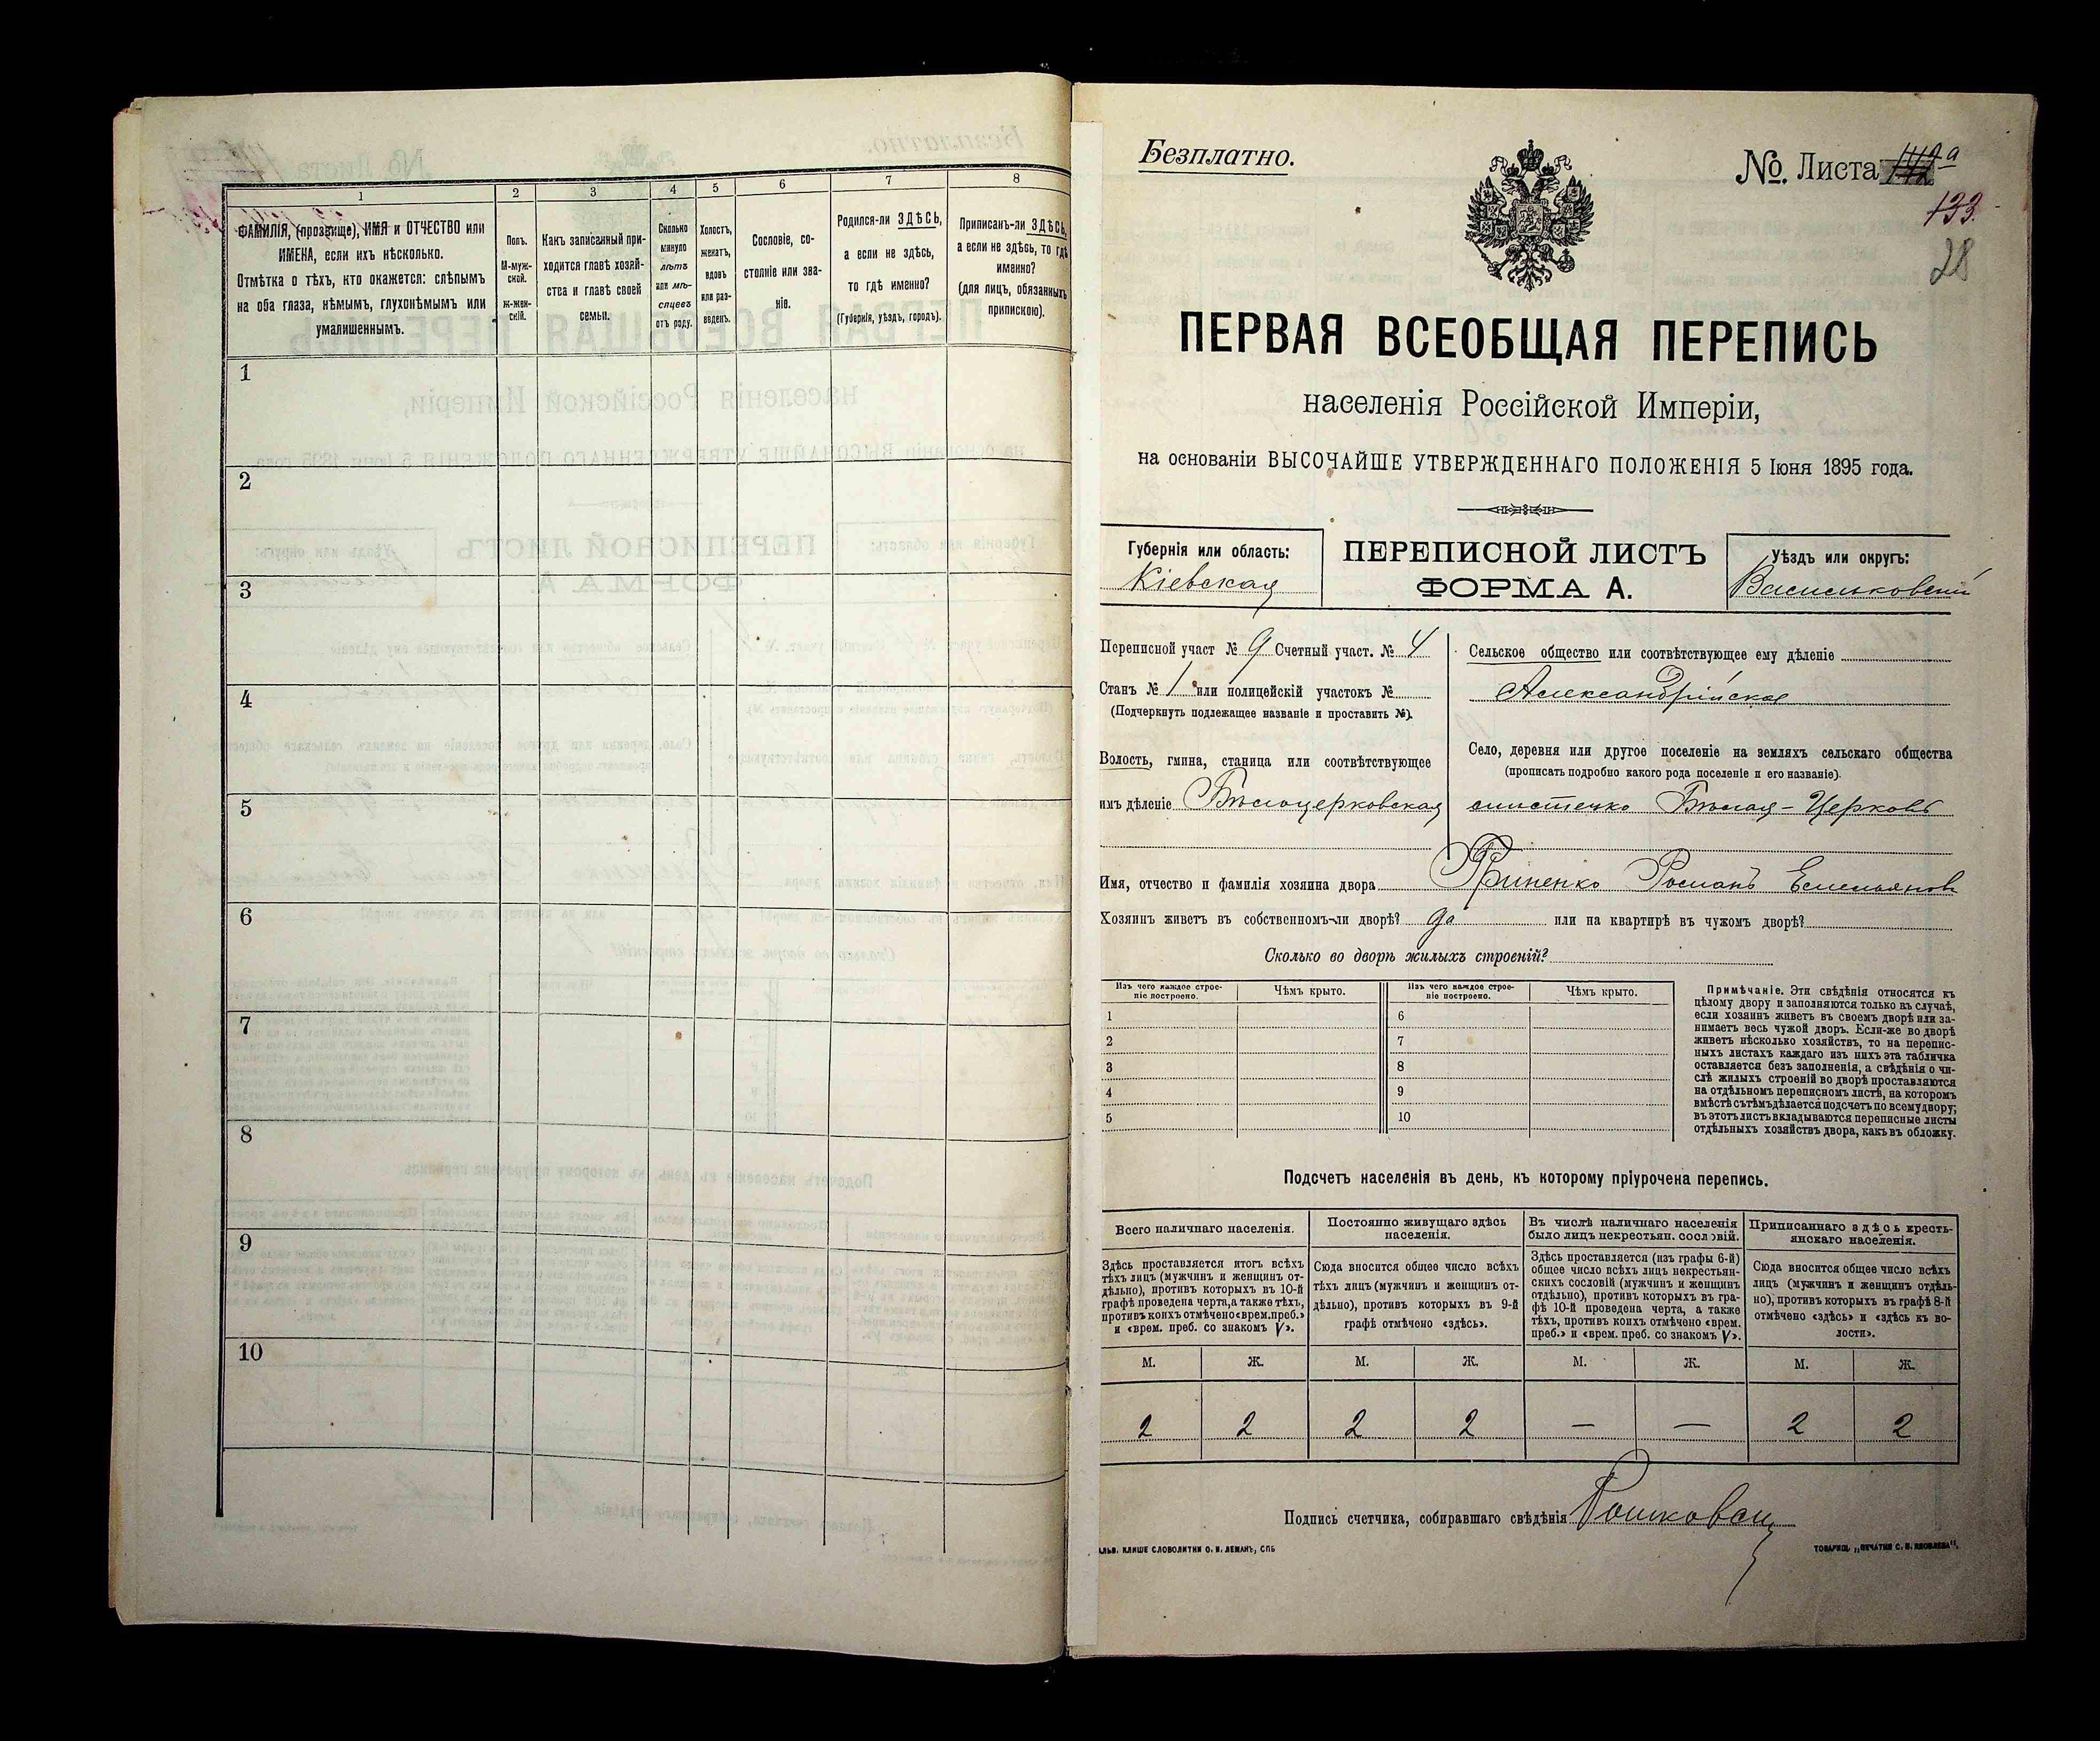 1
2
3
4
5
6
7
8
ФАМИЛІЯ, (прозвище), ИМЯ и ОТЧЕСТВО или
ИМЕНА, если ихъ нѣсколько.
Отмѣтка о тѣхъ, кто окажется: слѣпымъ
на оба глаза, нѣмымъ, глухонѣмымъ или
умалишеннымъ.
Полъ.
М-муж-
ской.
ж-жен-
скій.
Какъ записанный при-
ходится главѣ хозяй-
ства и главѣ своей
семьи.
Сколько
минуло
лѣтъ
или мѣ-
сяцевъ
отъ роду.
Холостъ,
женатъ,
вдовъ
или раз-
веденъ.
Сословіе, со-
стояніе или зва-
ніе.
Родился-ли ЗДѢСЬ,
а если не здѣсь,
то гдѣ именно?
(Губернія, уѣздъ, городъ).
Приписанъ-ли ЗДѢСЬ,
а если не здѣсь, то гдѣ
именно?
(для лицъ, обязанныхъ
припискою).
1
2
3
4
5
6
7
8
9
10
Безплатно.
№. Листа
133.
28
ПЕРВАЯ ВСЕОБЩАЯ ПЕРЕПИСЬ
населенія Россійской Имперіи,
на основаніи ВЫСОЧАЙШЕ УТВЕРЖДЕННАГО ПОЛОЖЕНІЯ 5 Іюня 1895 года.
Губернія или область:
Кіевская
ПЕРЕПИСНОЙ ЛИСТЪ
ФОРМА А.
Уѣздъ или округъ:
Васильковскій
Переписной участ № 9 Счетный участ. № 4
Станъ № 1 или полицейскій участокъ №
(Подчеркнуть подлежащее названіе и проставить №).
Волость, гмина, станица или соотвѣтствующее
имъ дѣленіе Бѣлоцерковская
Сельское общество или соотвѣтствующее ему дѣленіе
Александрійское
Село, деревня или другое поселеніе на земляхъ сельскаго общества
(прописать подробно какого рода поселеніе и его названіе).
мѣстечко Бѣлая-Церковь
Имя, отчество и фамилія хозяина двора Гриненко Романъ Емельяновъ
Хозяинъ живетъ въ собственномъ-ли дворѣ? да или на квартирѣ въ чужомъ дворѣ?
Сколько во дворѣ жилыхъ строеній?
Изъ чего каждое строе-
ніе построено.
Чѣмъ крыто.
Изъ чего каждое строе-
ніе построено.
Чѣмъ крыто.
1
2
3
4
5
6
7
8
9
10
Примѣчаніе. Эти свѣдѣнія относятся къ
цѣлому двору и заполняются только въ случаѣ,
если хозяинъ живетъ въ своемъ дворѣ или за-
нимаетъ весь чужой дворъ. Если-же во дворѣ
живетъ нѣсколько хозяйствъ, то на перепис-
ныхъ листахъ каждаго изъ нихъ эта табличка
оставляется безъ заполненія, а свѣдѣнія о чи-
слѣ жилыхъ строеній во дворѣ проставляются
на отдѣльномъ переписномъ листѣ, на которомъ
вмѣстѣ съ тѣмъ дѣлается подсчетъ по всему двору;
въ этотъ листъ вкладываются переписные листы
отдѣльныхъ хозяйствъ двора, какъ въ обложку.
Подсчетъ населенія въ день, къ которому пріурочена перепись.
Всего наличнаго населенія.
Здѣсь проставляется итогъ всѣхъ
тѣхъ лицъ (мужчинъ и женщинъ от-
дѣльно), противъ которыхъ въ 10-й
графѣ проведена черта, а также тѣхъ,
противъ коихъ отмѣчено «врем. преб.»
и «врем. преб. со знакомъ V».
Постоянно живущаго здѣсь
населенія.
Сюда вносится общее число всѣхъ
тѣхъ лицъ (мужчинъ и женщинъ от-
дѣльно), противъ которыхъ въ 9-й
графѣ отмѣчено «здѣсь».
Въ числѣ наличнаго населенія
было лицъ некрестьян. сословій.
Здѣсь проставляется (изъ графы 6-й)
общее число всѣхъ лицъ некрестьян-
скихъ сословій (мужчинъ и женщинъ
отдѣльно), противъ которыхъ въ гра-
фѣ 10-й проведена черта, а также
тѣхъ, противъ коихъ отмѣчено «врем.
преб.» и «врем. преб. со знакомъ V».
Приписаннаго здѣсь кресть-
янскаго населенія.
Сюда вносится общее число всѣхъ
лицъ (мужчинъ и женщинъ отдѣль-
но), противъ которыхъ въ графѣ 8-й
отмѣчено «здѣсь» и «здѣсь къ во-
лости».
М. Ж. М. Ж. М. Ж. М. Ж.
2 2 2 2 — — 2 2
Подпись счетчика, собиравшаго свѣдѣнія
КЛИШЕ СЛОВОЛИТНИ О. И. ЛЕМАНЪ, СПБ
ТОВАРИЩ. „ПЕЧАТНЯ С. П. ЯКОВЛЕВА".